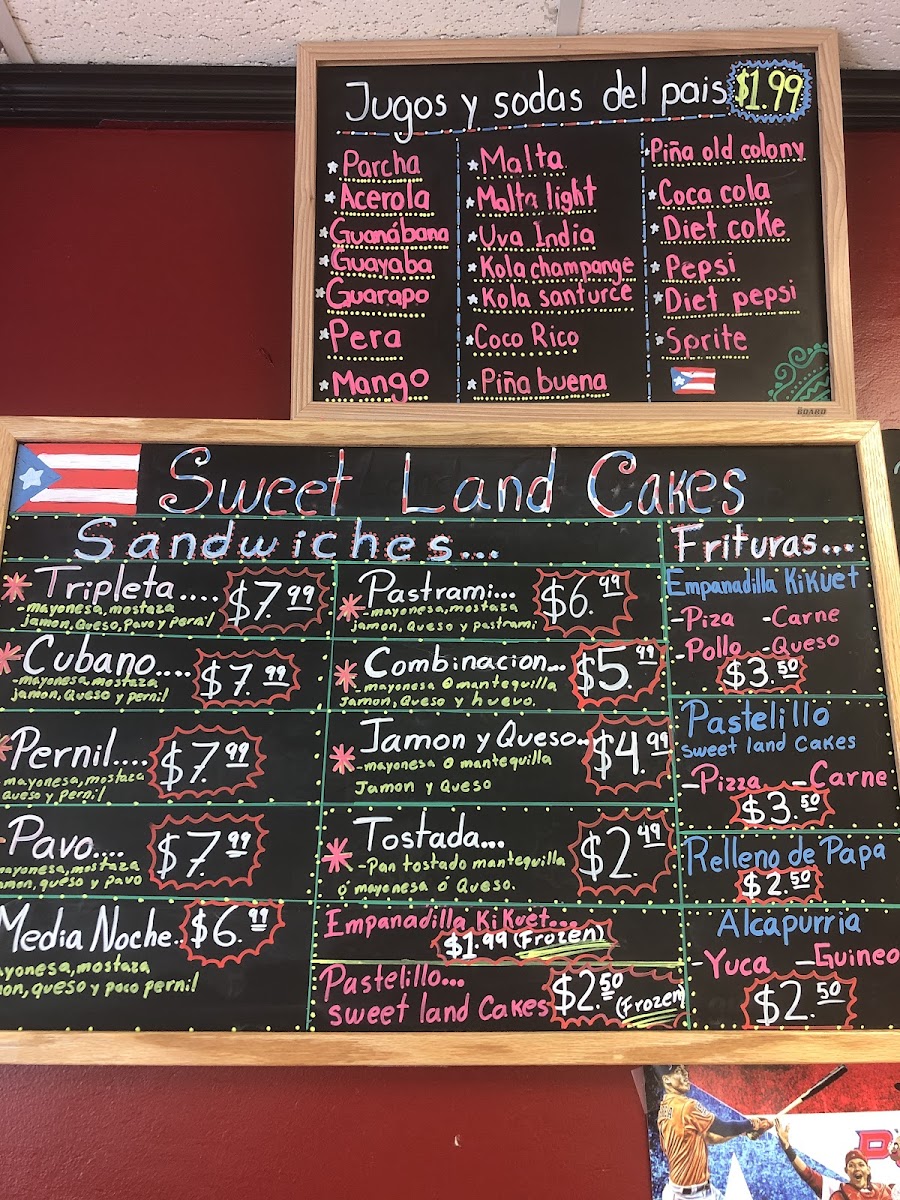 Jugos y sodas del pais $1.99
Parcha
Acerola
Guanábana
Guayaba
Guarapo
Pera
Mango
Malta
Malta light
Uva India
Kola champange
Kola santurce
Coco Rico
Piña buena
Piña old colony
Coca cola
Diet coke
Pepsi
Diet pepsi
Sprite
BOARD
Sweet Land Cakes
Sandwiches...
Tripleta.... $7.99
-mayonesa, mostaza
jamon, Queso, Pavo y Pernil
Cubano.... $7.99
-mayonesa, mostaza
jamon, Queso y pernil
Pernil.... $7.99
mayonesa, mostaza
queso y pernil
Pavo.... $7.99
mayonesa, mostaza
amon, queso y pavo
Media Noche.. $6.99
ayonesa, mostaza
mon, queso y poco pernil
Pastrami... $6.99
-mayonesa, mostaza
jamon, Queso y pastrami
Combinacion... $5.99
-mayonesa o mantequilla
Jamon, Queso y huevo.
Jamon y Queso.. $4.99
-mayonesa o mantequilla
Jamon y Queso
Tostada... $2.49
-Pan tostado mantequilla
ó mayonesa ó Queso.
Empanadilla KiKuet...
$1.99 (Frozen)
Pastelillo...
sweet land Cakes $2.50 (Frozen)
Frituras...
Empanadilla KiKUET
-Piza -Carne
-Pollo -Queso
$3.50
Pastelillo
sweet land cakes
-Pizza -Carne
$3.50
Relleno de Papa
$2.50
Alcapurria
-Yuca -Guineo
$2.50